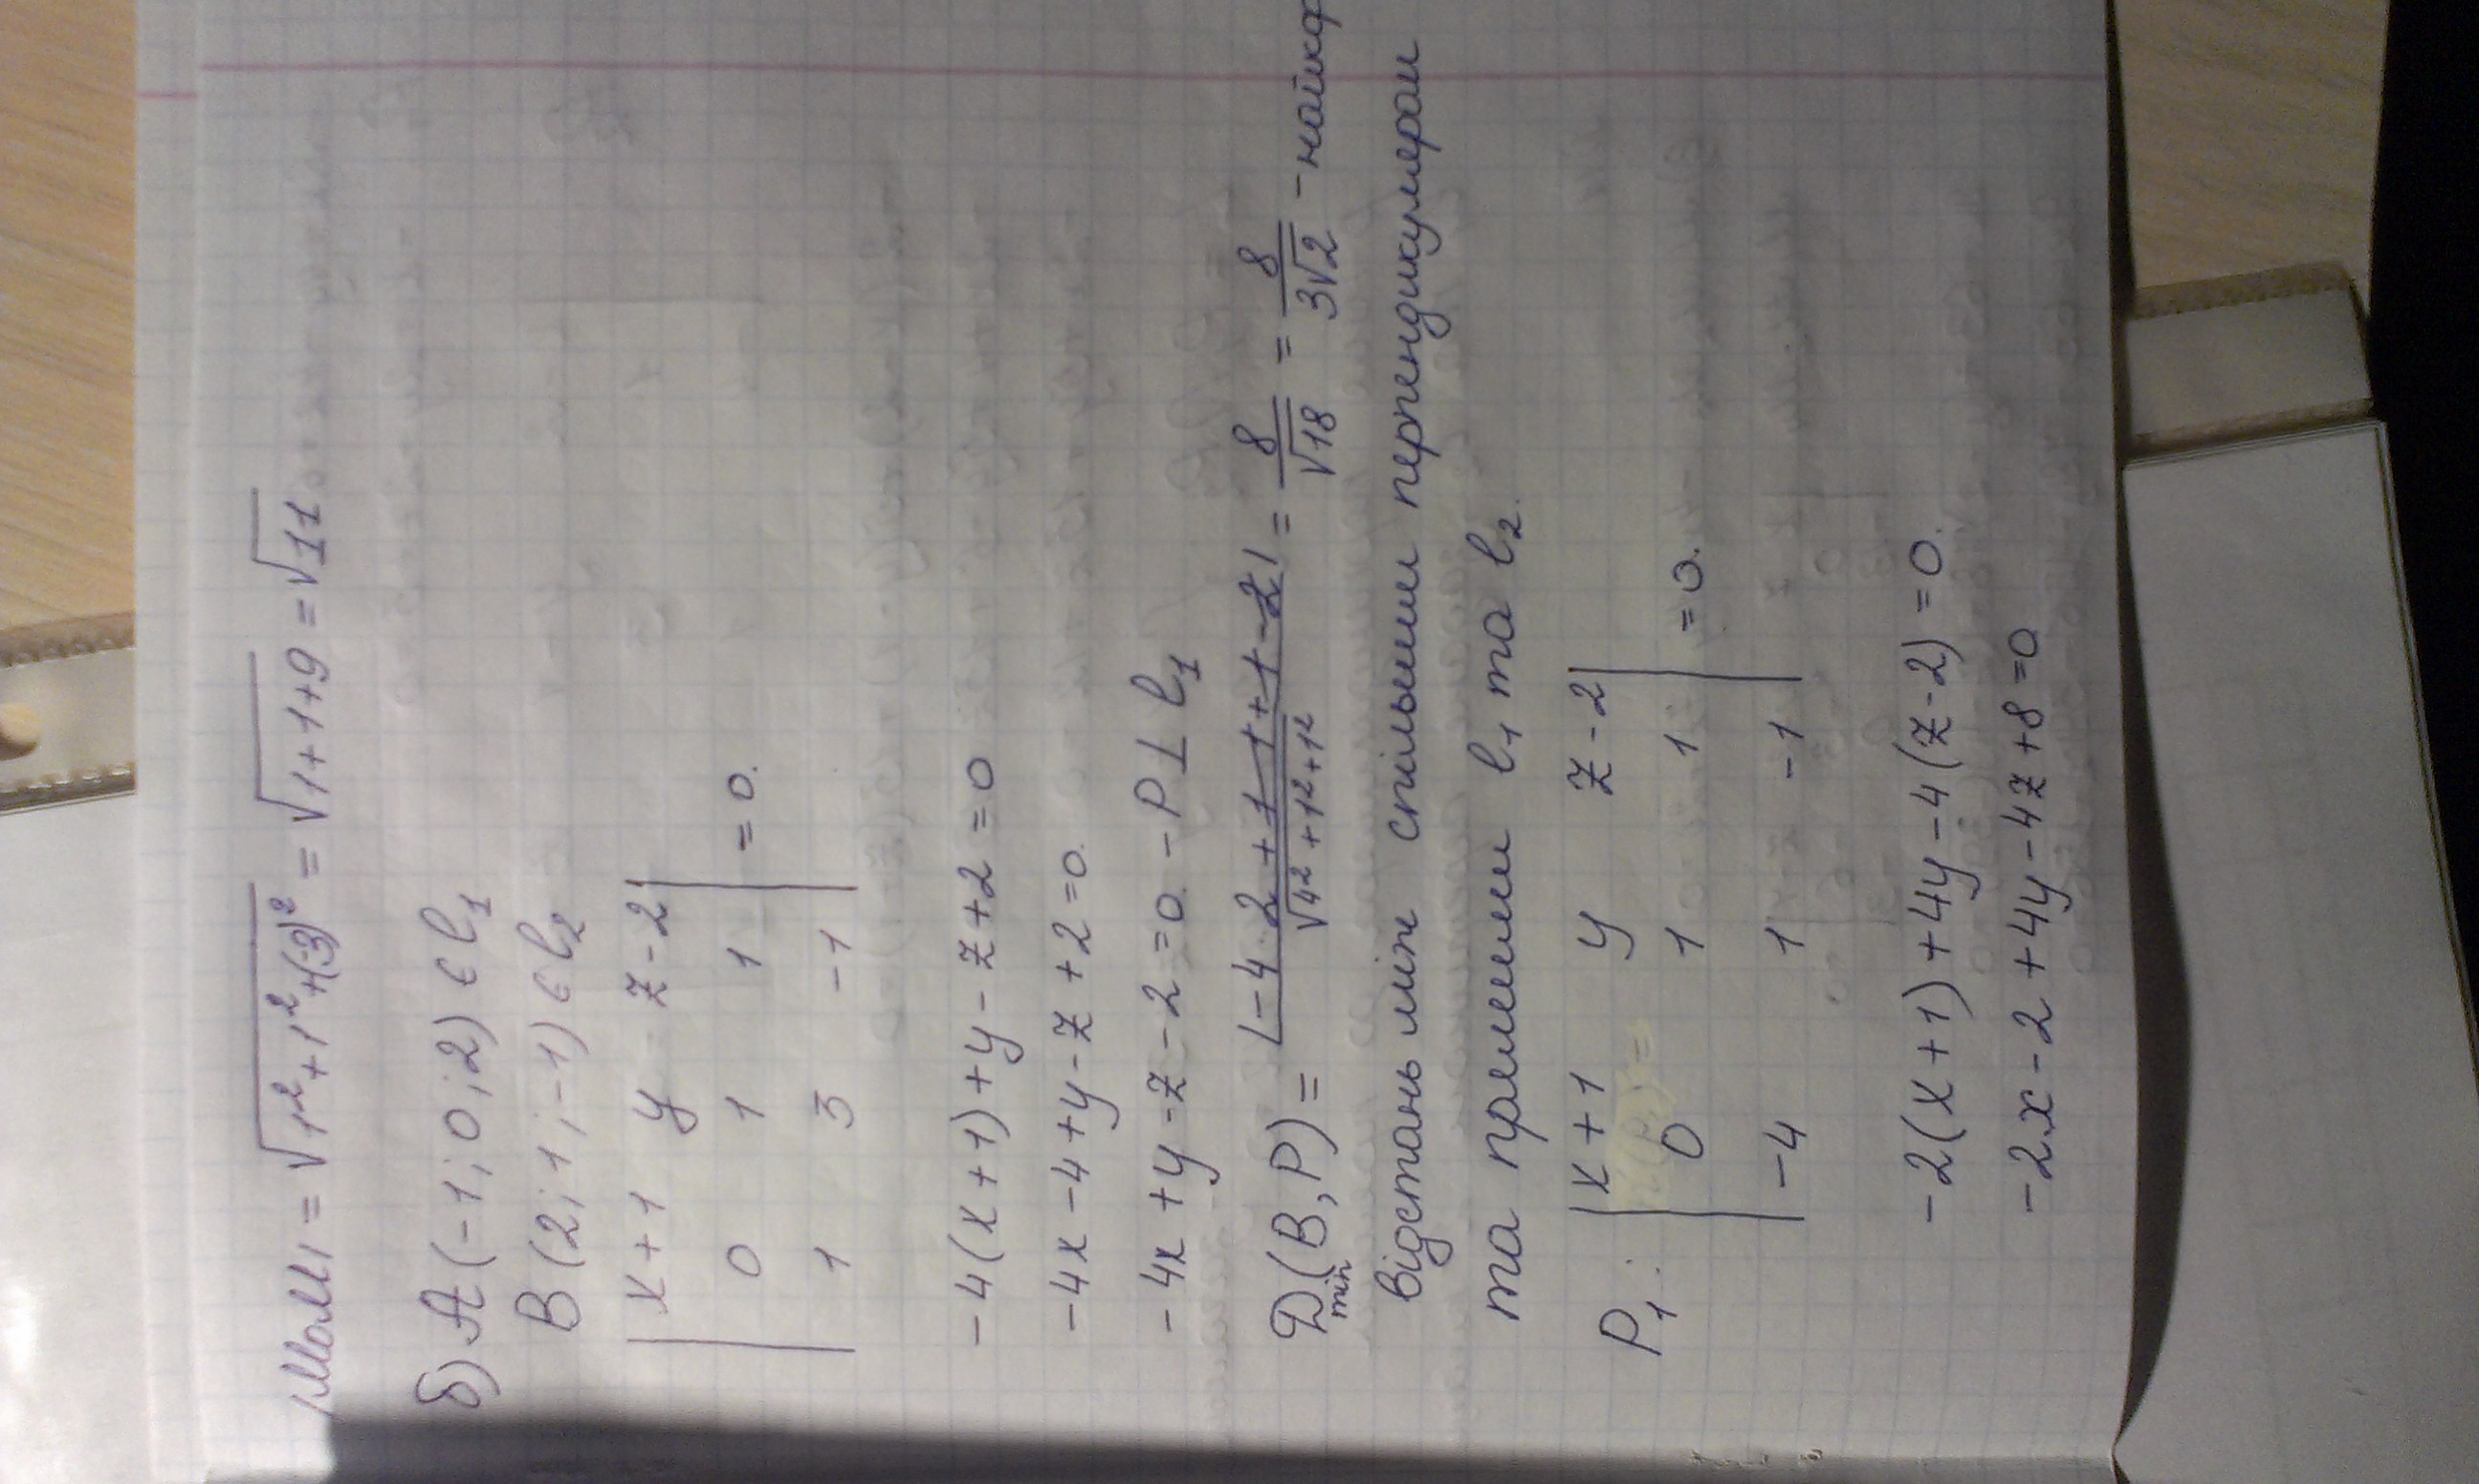 |M₀M₁| = √(1²+1²+(-3)²) = √(1+1+9) = √11
б) A (-1; 0; 2) ∈ l₁
B (2; 1; -1) ∈ l₂
| x+1 y z-2 |
| 0 1 1 | = 0.
| 1 3 -1 |
-4(x+1)+y-z+2=0
-4x-4+y-z+2=0.
-4x+y-z-2=0. - P ⊥ l₁
D min (B,P) = |-4·2+1+1-2| / √(4²+1²+1²) = 8/√18 = 8/(3√2) -
відстань між спільними перпендикулерам
та прямими l₁ та l₂.
P₁: | x+1 y z-2 |
| 0 1 1 | = 0.
| -4 1 -1 |
-2(x+1)+4y-4(z-2)=0.
-2x-2+4y-4z+8=0